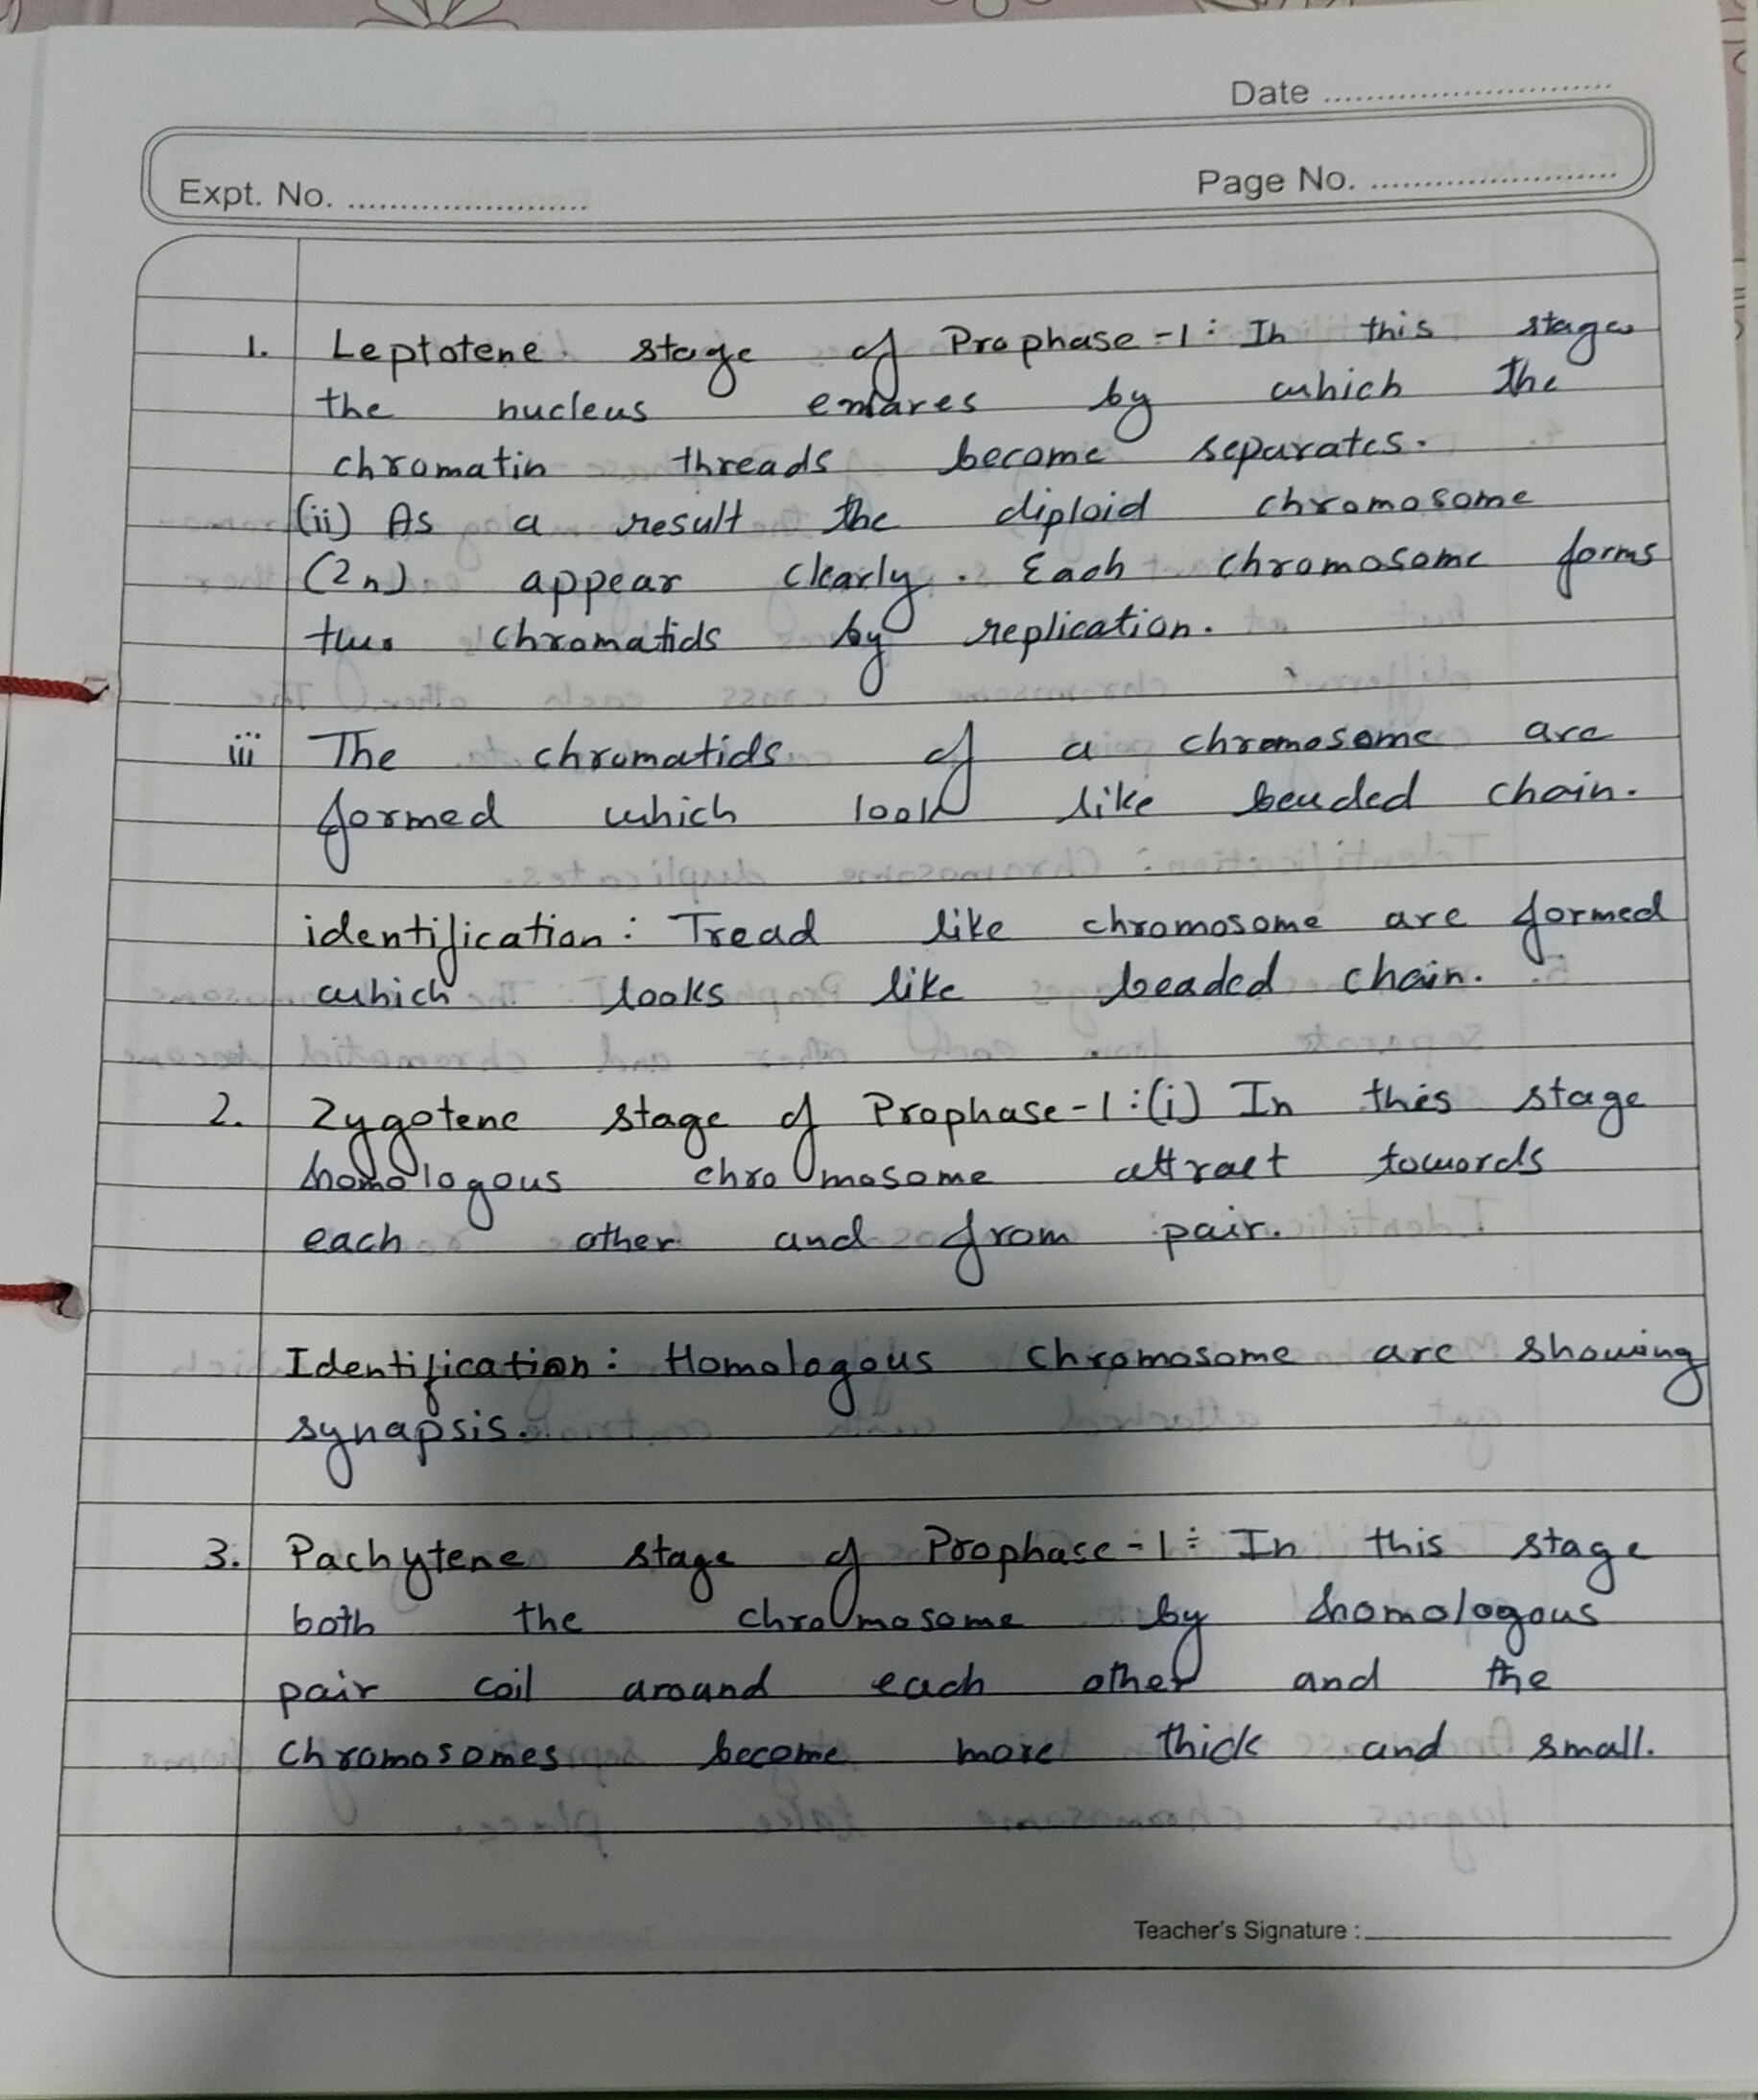 Date
Expt. No.
Page No.
1. Leptotene stage of Prophase-1: In this stage
the nucleus by which the
chromatin threads become separates.
(ii) As a result the diploid chromosome
(2n) appear clearly. Each chromosome forms
two chromatids by replication.
iii The chromatids of a chromosome are
formed which look like beaded chain.
identification: Tread like chromosome are formed
which looks like beaded chain.
2. Zygotene stage of Prophase-1:(i) In this stage
homologous chromosome attract towards
each other and from pair.
Identification: Homologous chromosome are showing
synapsis.
3. Pachytene stage of Prophase-1: In this stage
both the chromosome by homologous
pair coil around each other and the
chromosomes become more thick and small.
Teacher's Signature :